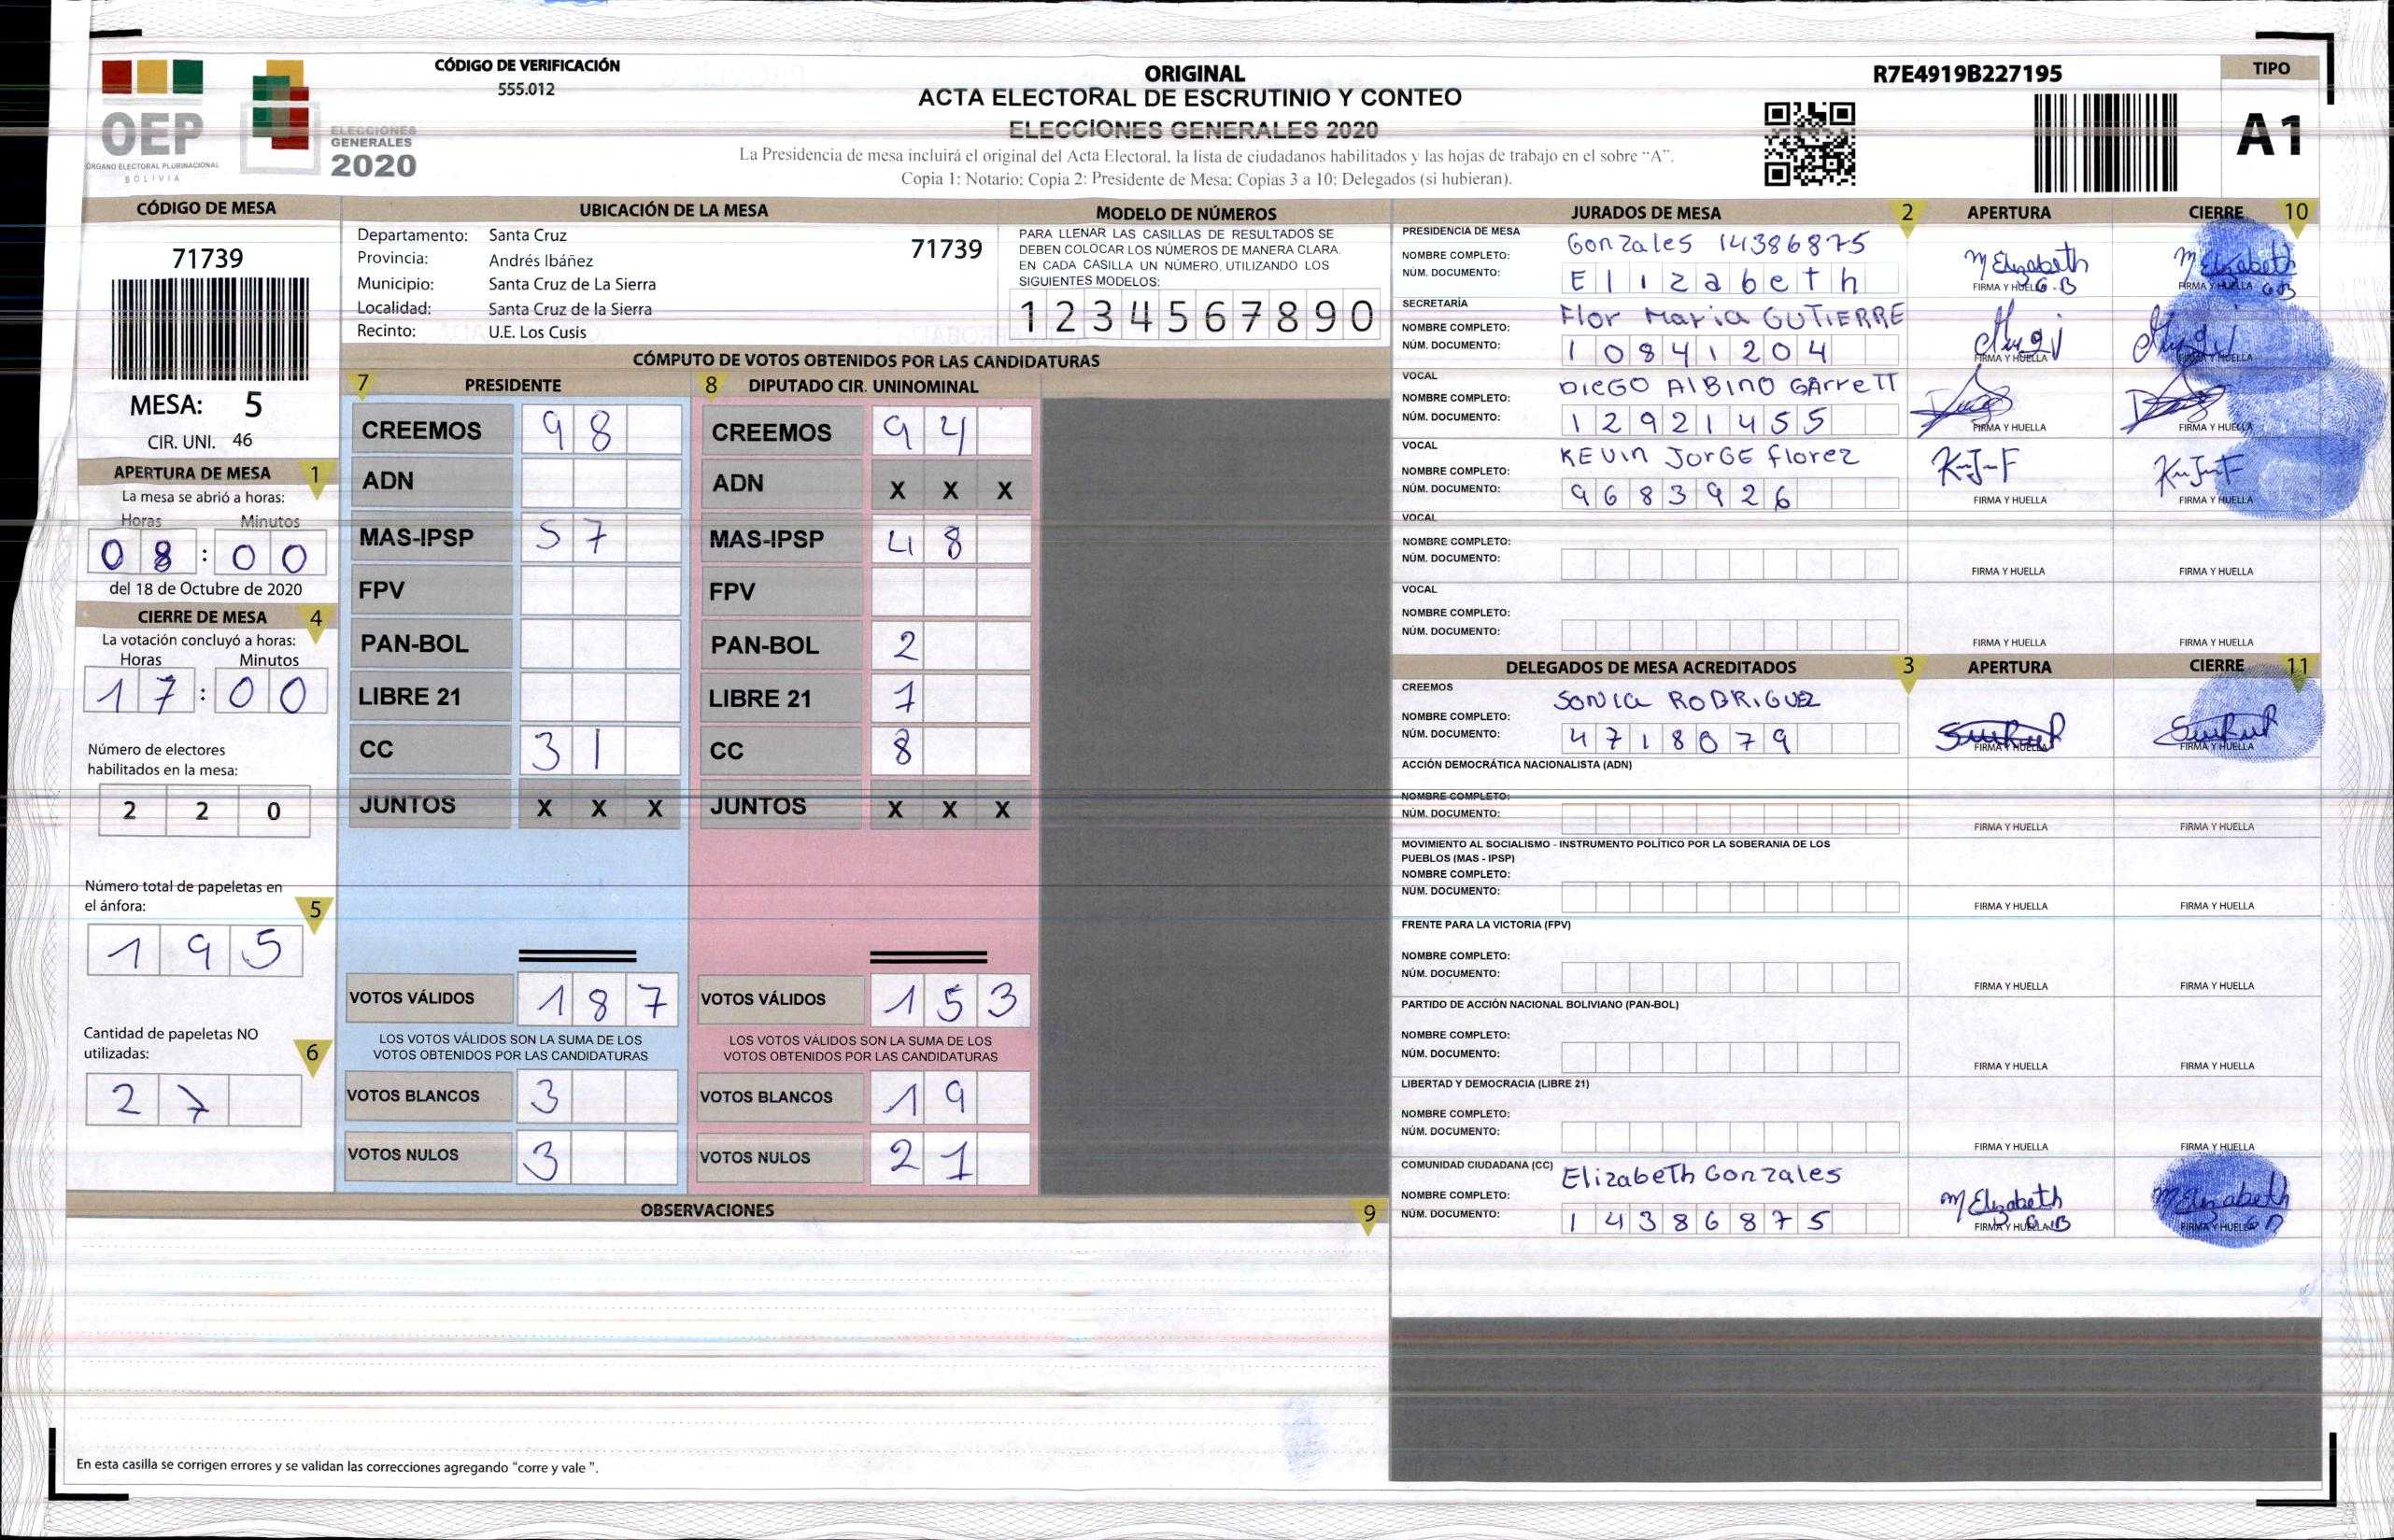 OEP
ÓRGANO ELECTORAL PLURINACIONAL
BOLIVIA
ELECCIONES
GENERALES
2020
CÓDIGO DE VERIFICACIÓN
555.012
ORIGINAL
ACTA ELECTORAL DE ESCRUTINIO Y CONTEO
ELECCIONES GENERALES 2020
La Presidencia de mesa incluirá el original del Acta Electoral, la lista de ciudadanos habilitados y las hojas de trabajo en el sobre "A".
Copia 1: Notario; Copia 2: Presidente de Mesa; Copias 3 a 10: Delegados (si hubieran).
R7E4919B227195
TIPO
A1
CÓDIGO DE MESA
71739
MESA: 5
CIR. UNI. 46
APERTURA DE MESA 1
La mesa se abrió a horas:
Horas Minutos
08:00
del 18 de Octubre de 2020
CIERRE DE MESA 4
La votación concluyó a horas:
Horas Minutos
17:00
Número de electores
habilitados en la mesa:
2 2 0
Número total de papeletas en
el ánfora: 5
1 9 5
Cantidad de papeletas NO
utilizadas: 6
2 7
UBICACIÓN DE LA MESA
Departamento: Santa Cruz 71739
Provincia: Andrés Ibáñez
Municipio: Santa Cruz de La Sierra
Localidad: Santa Cruz de la Sierra
Recinto: U.E. Los Cusis
MODELO DE NÚMEROS
PARA LLENAR LAS CASILLAS DE RESULTADOS SE
DEBEN COLOCAR LOS NÚMEROS DE MANERA CLARA.
EN CADA CASILLA UN NÚMERO, UTILIZANDO LOS
SIGUIENTES MODELOS:
1 2 3 4 5 6 7 8 9 0
CÓMPUTO DE VOTOS OBTENIDOS POR LAS CANDIDATURAS
7 PRESIDENTE
CREEMOS 9 8
ADN
MAS-IPSP 5 7
FPV
PAN-BOL
LIBRE 21
CC 3 1
JUNTOS X X X
VOTOS VÁLIDOS 1 8 7
LOS VOTOS VÁLIDOS SON LA SUMA DE LOS
VOTOS OBTENIDOS POR LAS CANDIDATURAS
VOTOS BLANCOS 3
VOTOS NULOS 3
8 DIPUTADO CIR. UNINOMINAL
CREEMOS 9 4
ADN X X X
MAS-IPSP 4 8
FPV
PAN-BOL 2
LIBRE 21 1
CC 8
JUNTOS X X X
VOTOS VÁLIDOS 1 5 3
LOS VOTOS VÁLIDOS SON LA SUMA DE LOS
VOTOS OBTENIDOS POR LAS CANDIDATURAS
VOTOS BLANCOS 1 9
VOTOS NULOS 2 1
OBSERVACIONES 9
En esta casilla se corrigen errores y se validan las correcciones agregando "corre y vale ".
JURADOS DE MESA 2 APERTURA CIERRE 10
PRESIDENCIA DE MESA
NOMBRE COMPLETO: Gonzales 14386875
NÚM. DOCUMENTO: Elizabeth
M Elizabeth G.B M Elizabeth GB
FIRMA Y HUELLA FIRMA Y HUELLA
SECRETARÍA
NOMBRE COMPLETO: Flor Maria GUTIERRE
NÚM. DOCUMENTO: 10841204
FIRMA Y HUELLA FIRMA Y HUELLA
VOCAL
NOMBRE COMPLETO: DIEGO AlBINO GArreTT
NÚM. DOCUMENTO: 12921455
FIRMA Y HUELLA FIRMA Y HUELLA
VOCAL
NOMBRE COMPLETO: KEVIn JorGE florez
NÚM. DOCUMENTO: 9683926
K-J-F
FIRMA Y HUELLA FIRMA Y HUELLA
VOCAL
NOMBRE COMPLETO:
NÚM. DOCUMENTO:
FIRMA Y HUELLA FIRMA Y HUELLA
VOCAL
NOMBRE COMPLETO:
NÚM. DOCUMENTO:
FIRMA Y HUELLA FIRMA Y HUELLA
DELEGADOS DE MESA ACREDITADOS 3 APERTURA CIERRE 11
CREEMOS
NOMBRE COMPLETO: SONIA RODRIGUEZ
NÚM. DOCUMENTO: 4718079
FIRMA Y HUELLA FIRMA Y HUELLA
ACCIÓN DEMOCRÁTICA NACIONALISTA (ADN)
NOMBRE COMPLETO:
NÚM. DOCUMENTO:
FIRMA Y HUELLA FIRMA Y HUELLA
MOVIMIENTO AL SOCIALISMO - INSTRUMENTO POLÍTICO POR LA SOBERANIA DE LOS
PUEBLOS (MAS - IPSP)
NOMBRE COMPLETO:
NÚM. DOCUMENTO:
FIRMA Y HUELLA FIRMA Y HUELLA
FRENTE PARA LA VICTORIA (FPV)
NOMBRE COMPLETO:
NÚM. DOCUMENTO:
FIRMA Y HUELLA FIRMA Y HUELLA
PARTIDO DE ACCIÓN NACIONAL BOLIVIANO (PAN-BOL)
NOMBRE COMPLETO:
NÚM. DOCUMENTO:
FIRMA Y HUELLA FIRMA Y HUELLA
LIBERTAD Y DEMOCRACIA (LIBRE 21)
NOMBRE COMPLETO:
NÚM. DOCUMENTO:
FIRMA Y HUELLA FIRMA Y HUELLA
COMUNIDAD CIUDADANA (CC)
NOMBRE COMPLETO: Elizabeth Gonzales
NÚM. DOCUMENTO: 14386875
M Elizabeth M Elizabeth
FIRMA Y HUELLA FIRMA Y HUELLA